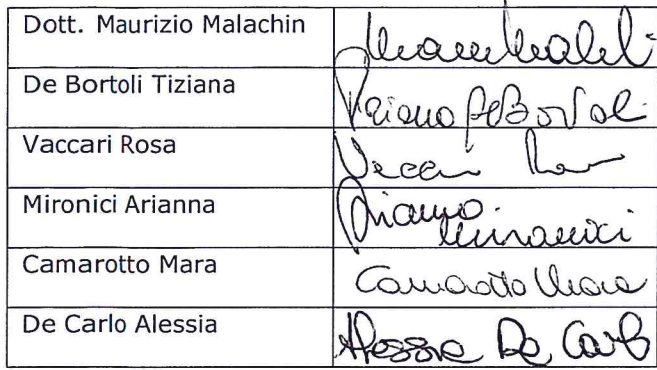 Dott. Maurizio Malachin
De Bortoli Tiziana
Tiziana De Bortoli
Vaccari Rosa
Mironici Arianna
Arianna Mironici
Camarotto Mara
Camarotto Mara
De Carlo Alessia
Alessia De Carlo